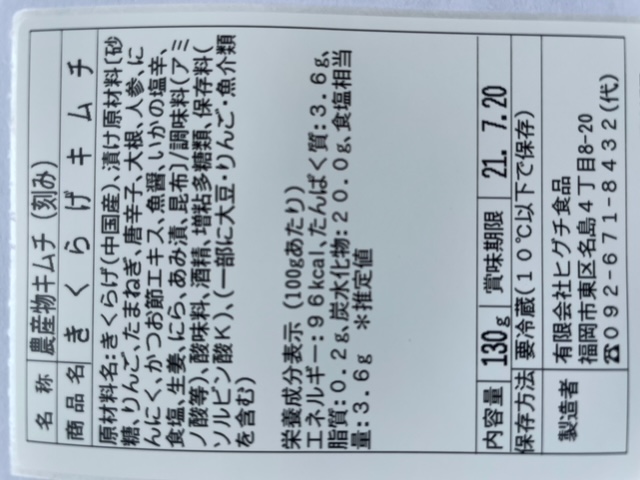 名称 農産物キムチ（刻み）
商品名 きくらげキムチ
原材料名：きくらげ（中国産）、漬け原材料〔砂
糖、りんご、たまねぎ、唐辛子、大根、人参、に
んにく、かつお節エキス、魚醤、いかの塩辛、
食塩、生姜、にら、あみ漬、昆布〕/調味料（アミ
ノ酸等）、酸味料、酒精、増粘多糖類、保存料（
ソルビン酸K）、（一部に大豆・りんご・魚介類
を含む）
栄養成分表示（100gあたり）
エネルギー：96kcal、たんぱく質：3.6g、
脂質：0.2g、炭水化物：20.0g、食塩相当
量：3.6g ＊推定値
内容量 130g 賞味期限 21. 7.20
保存方法 要冷蔵（10℃以下で保存）
製造者 有限会社ヒグチ食品
福岡市東区名島4丁目8-20
☎092-671-8432（代）